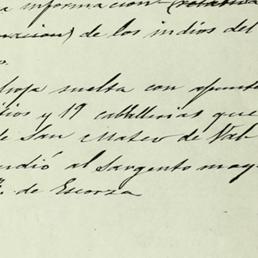 a informacion (rotativa
uracion) de los indios del
o.
hoja suelta con apunte
tios y 19 caballerias que
de San Mateo de Nah
endió al Sargento may
F. de Escorza